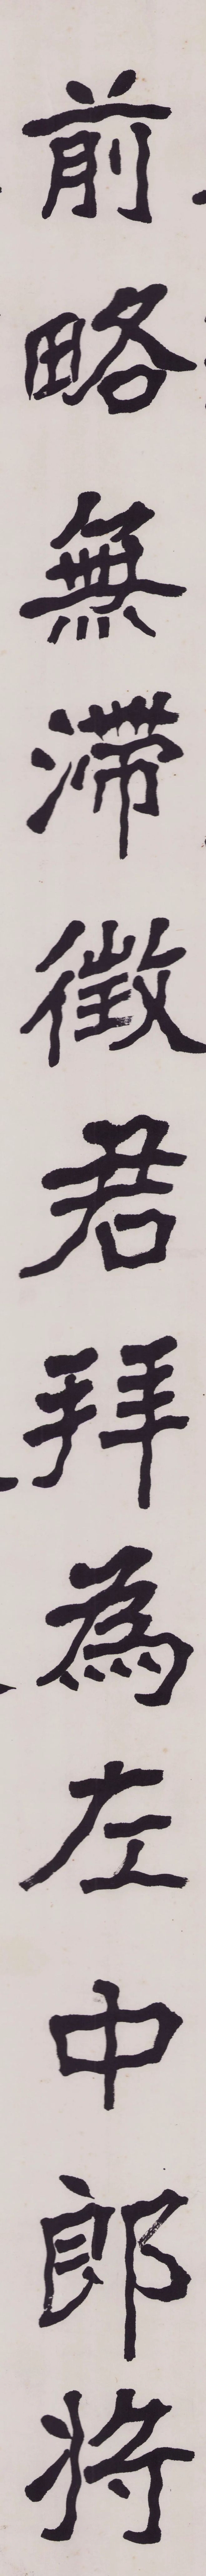 前略無滯徵君拜為左中郎將